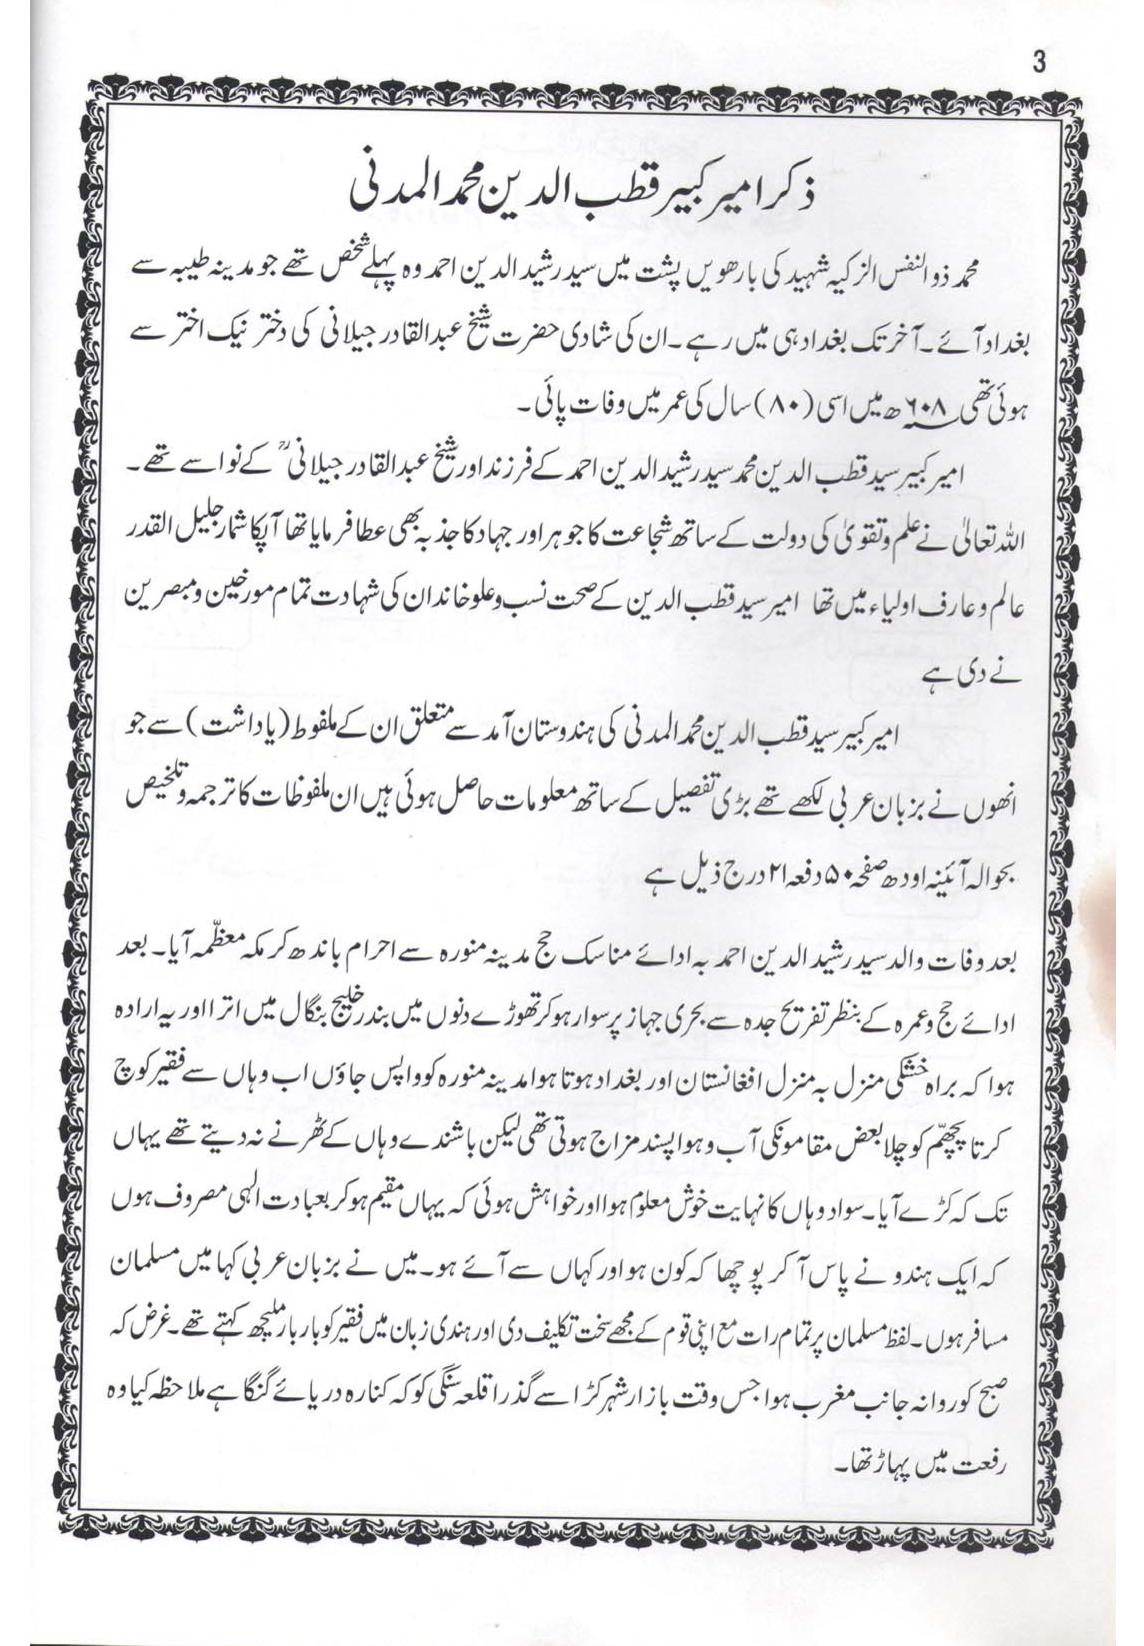 3
ذکر امیر کبیر قطب الدین محمد المدنی
محمد ذوالنفس الزکیہ شہید کی بارھویں پشت میں سید رشید الدین احمد وہ پہلے شخص تھے جو مدینہ طیبہ سے
بغداد آئے۔ آخر تک بغداد ہی میں رہے۔ ان کی شادی حضرت شیخ عبدالقادر جیلانی کی دختر نیک اختر سے
ہوئی تھی ۶۰۸ھ میں اسی (۸۰) سال کی عمر میں وفات پائی۔
امیر کبیر سید قطب الدین محمد سید رشید الدین احمد کے فرزند اور شیخ عبدالقادر جیلانیؒ کے نواسے تھے۔
اللہ تعالیٰ نے علم و تقویٰ کی دولت کے ساتھ شجاعت کا جوہر اور جہاد کا جذبہ بھی عطا فرمایا تھا آپکا شمار جلیل القدر
عالم و عارف اولیاء میں تھا امیر سید قطب الدین کے صحت نسب و علو خاندان کی شہادت تمام مورخین و مبصرین
نے دی ہے
امیر کبیر سید قطب الدین محمد المدنی کی ہندوستان آمد سے متعلق ان کے ملفوط (یاداشت) سے جو
انھوں نے بزبان عربی لکھے تھے بڑی تفصیل کے ساتھ معلومات حاصل ہوئی ہیں ان ملفوظات کا ترجمہ و تلخیص
بحوالہ آئینہ اودھ صفحہ ۵۰ دفعہ ۲۱ درج ذیل ہے
بعد وفات والد سید رشید الدین احمد بہ ادائے مناسک حج مدینہ منورہ سے احرام باندھ کر مکہ معظّمہ آیا۔ بعد
ادائے حج و عمرہ کے بنظر تفریح جدہ سے بحری جہاز پر سوار ہو کر تھوڑے دنوں میں بندر خلیج بنگال میں اترا اور یہ ارادہ
ہوا کہ براہ خشکی منزل بہ منزل افغانستان اور بغداد ہوتا ہوا مدینہ منورہ کو واپس جاؤں اب وہاں سے فقیر کوچ
کرتا پچھّم کو چلا بعض مقامونکی آب و ہوا پسند مزاج ہوتی تھی لیکن باشندے وہاں کے ٹھرنے نہ دیتے تھے یہاں
تک کہ کڑے آیا۔ سواد وہاں کا نہایت خوش معلوم ہوا اور خواہش ہوئی کہ یہاں مقیم ہو کر بعبادت الہی مصروف ہوں
کہ ایک ہندو نے پاس آ کر پوچھا کہ کون ہو اور کہاں سے آئے ہو۔ میں نے بزبان عربی کہا میں مسلمان
مسافر ہوں۔ لفظ مسلمان پر تمام رات مع اپنی قوم کے مجھے سخت تکلیف دی اور ہندی زبان میں فقیر کو بار بار ملیچھ کہتے تھے۔ غرض کہ
صبح کو روانہ جانب مغرب ہوا جس وقت بازار شہر کڑا سے گذرا قلعہ سنگی کو کہ کنارہ دریائے گنگا ہے ملاحظہ کیا وہ
رفعت میں پہاڑ تھا۔